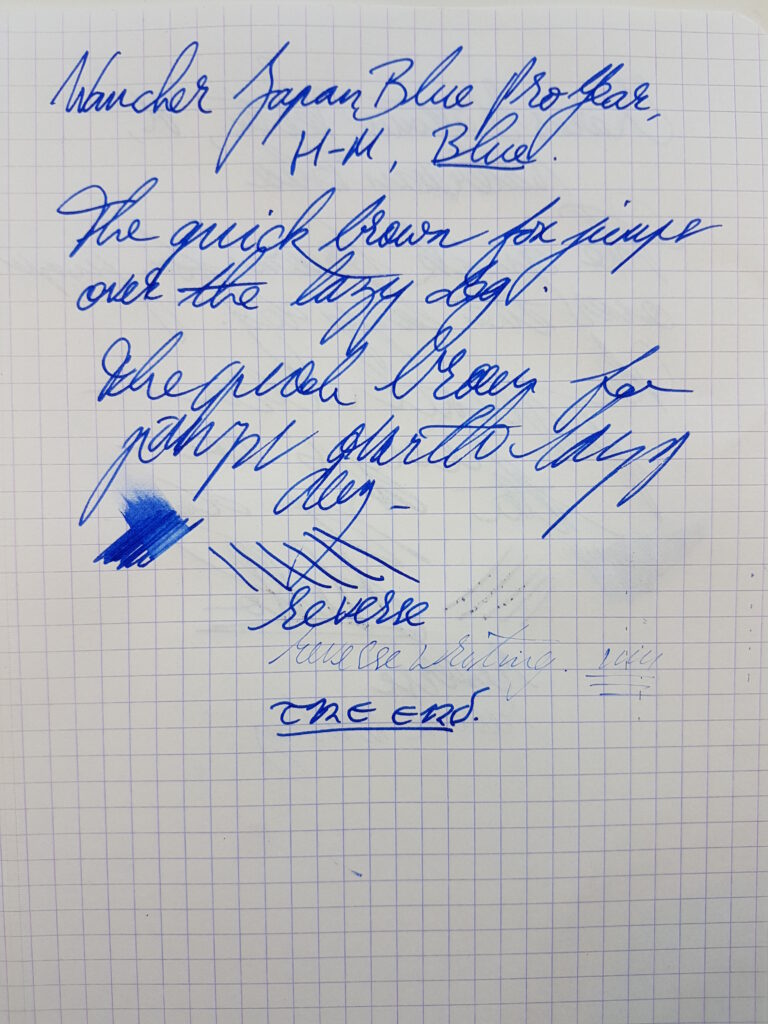 Wancher Japan Blue Pro Gear,
H-M, Blue.
The quick brown fox jumps
over the lazy dog.
The quick brown fox
jumps over the lazy
dog -
reverse
reverse writing.
THE END.